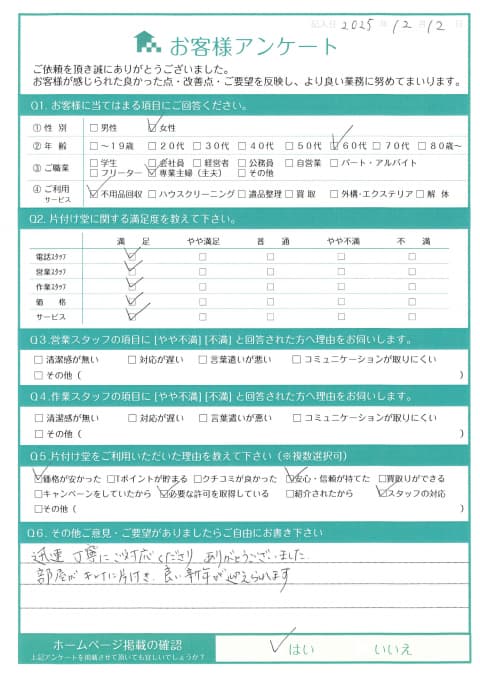 記入日 2025 年 12 月 12 日
お客様アンケート
ご依頼を頂き誠にありがとうございました。
お客様が感じられた良かった点・改善点・ご要望を反映し、より良い業務に努めてまいります。
Q1. お客様に当てはまる項目にご回答ください。
① 性 別 □男性 ☑女性
② 年 齢 □~19歳 □20代 □30代 □40代 □50代 ☑60代 □70代 □80歳~
③ ご職業 □学生 □会社員 □経営者 □公務員 □自営業 □パート・アルバイト
□フリーター ☑専業主婦（主夫） □その他
④ ご利用サービス ☑不用品回収 □ハウスクリーニング □遺品整理 □買取 □外構・エクステリア □解 体
Q2. 片付け堂に関する満足度を教えて下さい。
満 足 やや満足 普 通 やや不満 不 満
電話スタッフ ☑ □ □ □ □
営業スタッフ ☑ □ □ □ □
作業スタッフ ☑ □ □ □ □
価 格 ☑ □ □ □ □
サービス ☑ □ □ □ □
Q3.営業スタッフの項目に [やや不満] [不満] と回答された方へ理由をお伺いします。
□清潔感が無い □対応が遅い □言葉遣いが悪い □コミュニケーションが取りにくい
□その他 ( )
Q4.作業スタッフの項目に [やや不満] [不満] と回答された方へ理由をお伺いします。
□清潔感が無い □対応が遅い □言葉遣いが悪い □コミュニケーションが取りにくい
□その他 ( )
Q5.片付け堂をご利用いただいた理由を教えて下さい（※複数選択可）
☑価格が安かった □Tポイントが貯まる □クチコミが良かった ☑安心・信頼が持てた □買取りができる
□キャンペーンをしていたから ☑必要な許可を取得している □紹介されたから ☑スタッフの対応
□その他 ( )
Q6. その他ご意見・ご要望がありましたらご自由にお書き下さい
迅速 丁寧にご対応くださり ありがとうございました.
部屋が キレイに片付き 良い新年が迎えられます
ホームページ掲載の確認
上記アンケートを掲載させて頂いても宜しいでしょうか？
✓はい いいえ